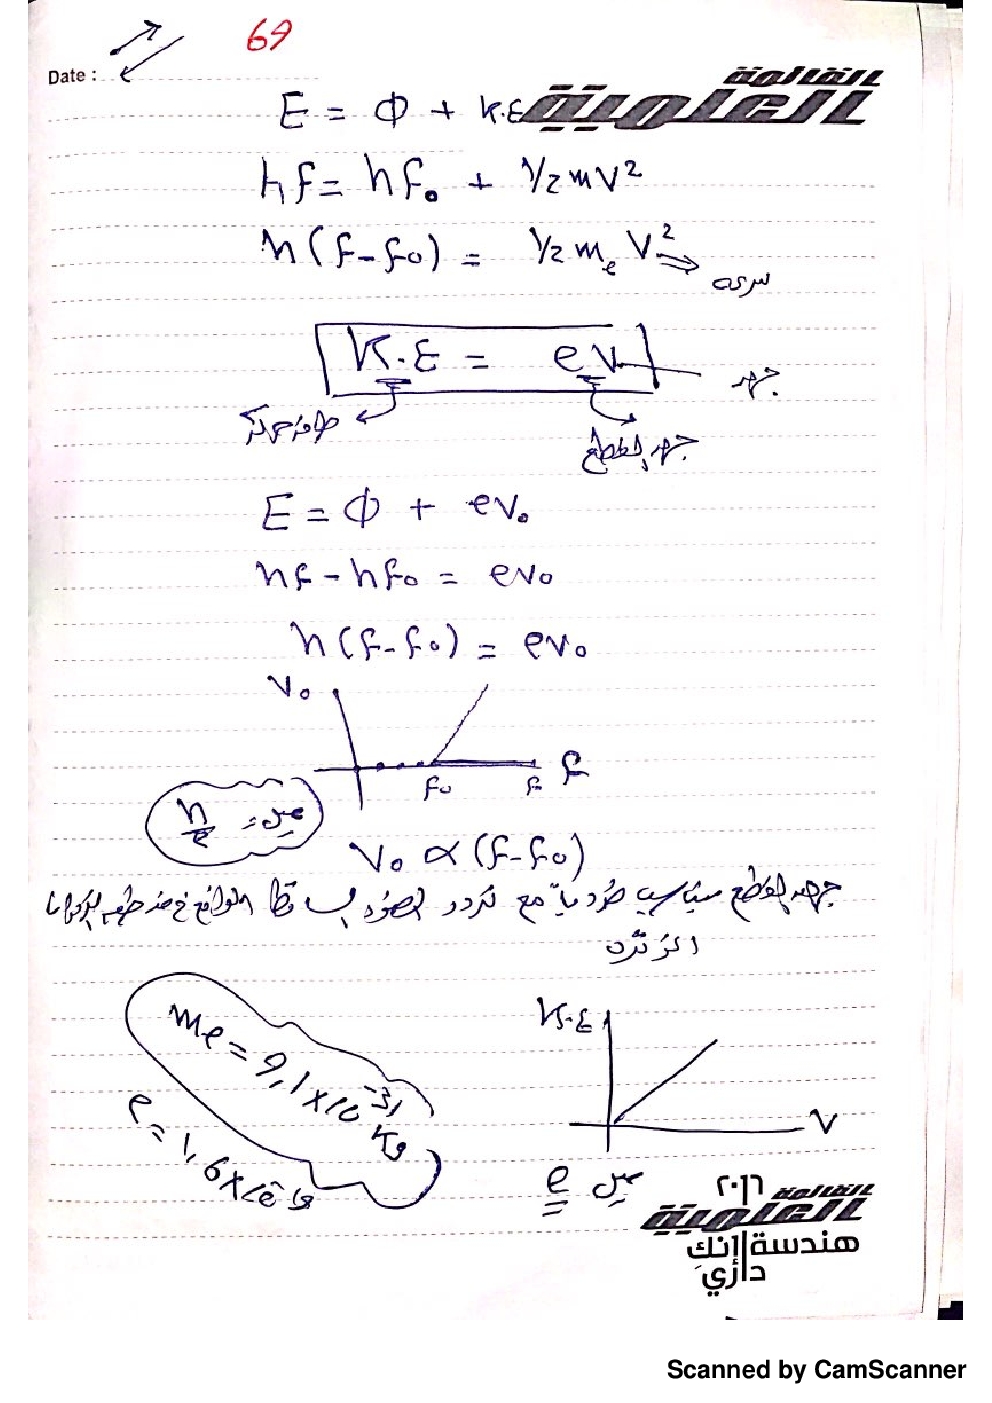 69
Date :
القائمة
العلمية
E = Φ + K.E
hf = hf₀ + 1/2 mV²
h(f-f₀) = 1/2 mₑ V² ⇒
سرعه
K.E = eV
جهد
طاقة حركة
جهد القطع
E = Φ + eV₀
hf - hf₀ = eV₀
h(f-f₀) = eV₀
V₀
f
f₀ f
ميل = h/e
V₀ ∝ (f-f₀)
جهد القطع يتناسب طرديا مع تردد الضوء الساقط الواقع في
mₑ = 9,1×10⁻³¹ Kg
e = 1,6×10
K.E
V
ميل e
٢٠١٦ القائمة
العلمية
هندسة إنك
دارٍي
Scanned by CamScanner